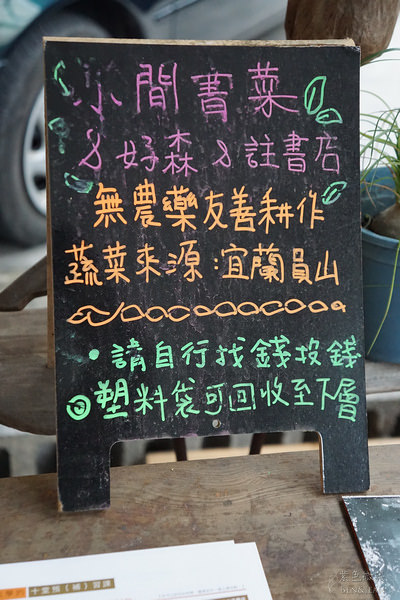 小間書菜
& 好森 & 註書店
無農藥友善耕作
蔬菜來源:宜蘭員山
•請自行找錢投錢
◎塑料袋可回收至下層